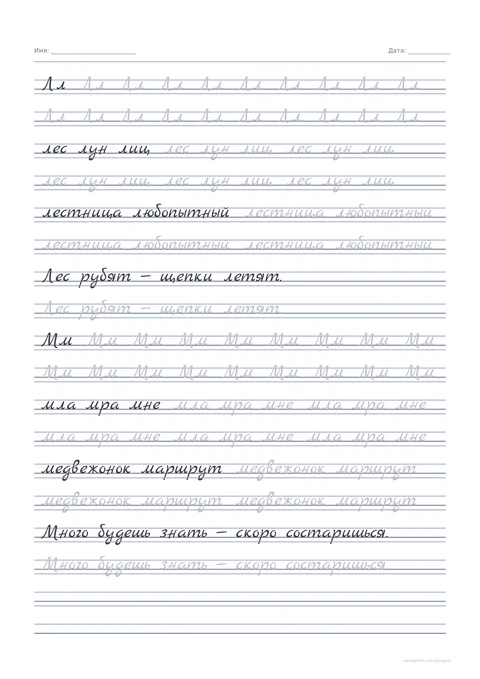 Имя: Дата:
Лл Лл Лл Лл Лл Лл Лл Лл Лл Лл
Лл Лл Лл Лл Лл Лл Лл Лл Лл Лл
лес лун лиц лес лун лиц лес лун лиц
лес лун лиц лес лун лиц лес лун лиц
лестница любопытный лестница любопытный
лестница любопытный лестница любопытный
Лес рубят — щепки летят.
Лес рубят — щепки летят.
Мм Мм Мм Мм Мм Мм Мм Мм Мм
Мм Мм Мм Мм Мм Мм Мм Мм Мм
мла мра мне мла мра мне мла мра мне
мла мра мне мла мра мне мла мра мне
медвежонок маршрут медвежонок маршрут
медвежонок маршрут медвежонок маршрут
Много будешь знать — скоро состаришься.
Много будешь знать — скоро состаришься.